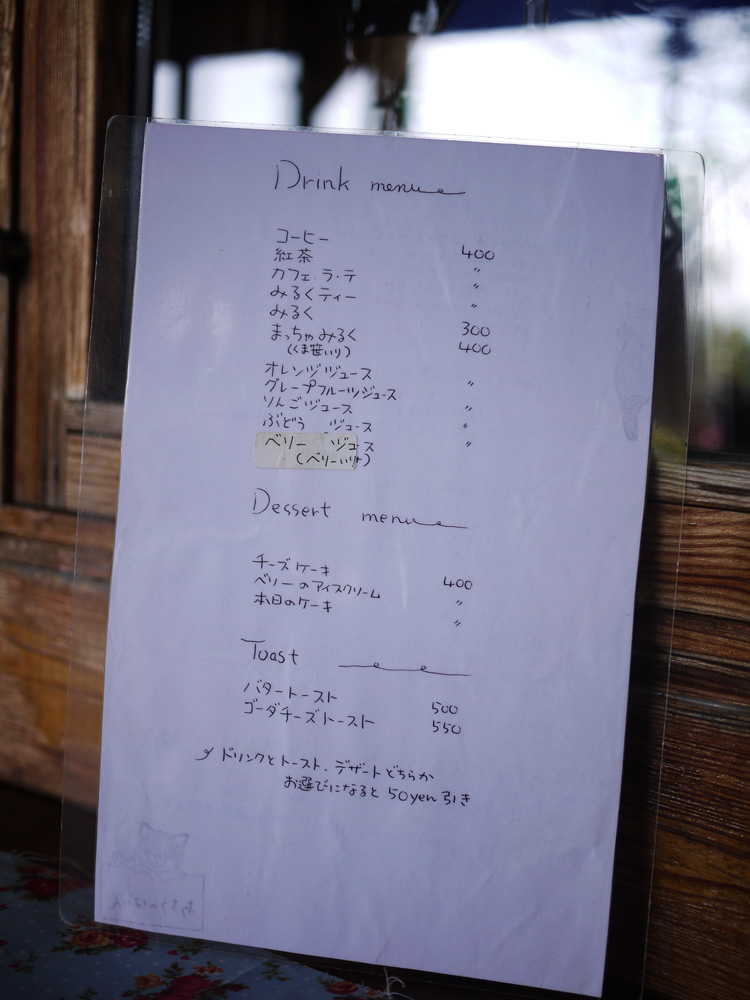 Drink menu
コーヒー 400
紅茶 〃
カフェ・ラ・テ 〃
みるくティー 〃
みるく 300
まっちゃみるく 400
(くま笹いり)
オレンヅヅュース 〃
グレープフルーツヅュース
りんごヅュース 〃
ぶどう ヅュース 〃
ベリー ヅュース 〃
(ベリーいり)
Dessert menu
チーズケーキ 400
ベリーのアイスクリーム 〃
本日のケーキ 〃
Toast
バタートースト 500
ゴーダチーズトースト 550
ドリンクとトースト、デザートどちらか
お選びになると 50yen 引き